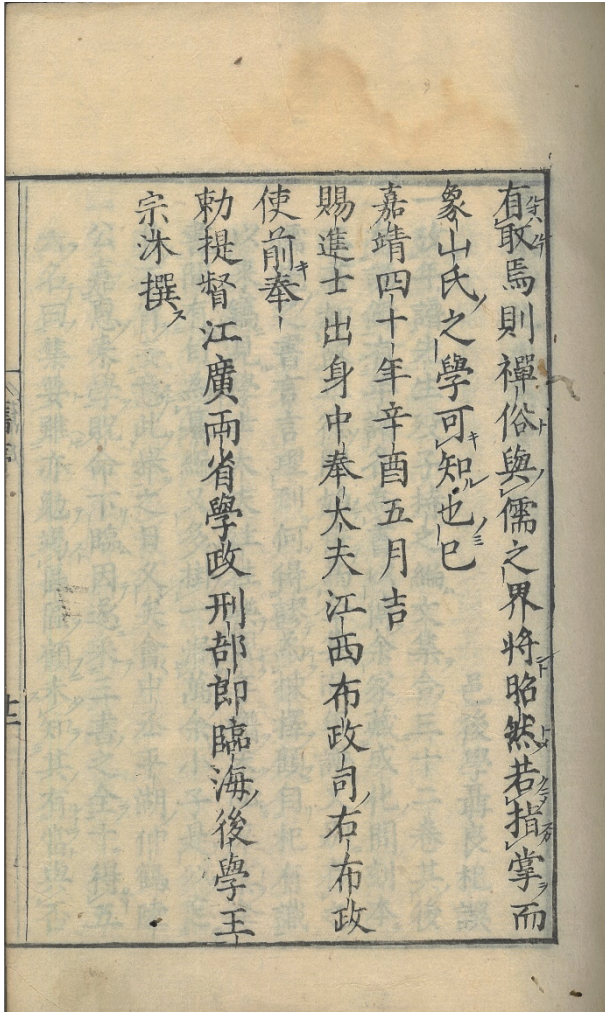 有取焉則禪俗與儒之界將昭然若指掌而
象山氏之學可知也已
嘉靖四十年辛酉五月吉
賜進士出身中奉大夫江西布政司右布政
使前奉
勅提督江廣兩省學政刑部郎臨海後學王
宗沐撰